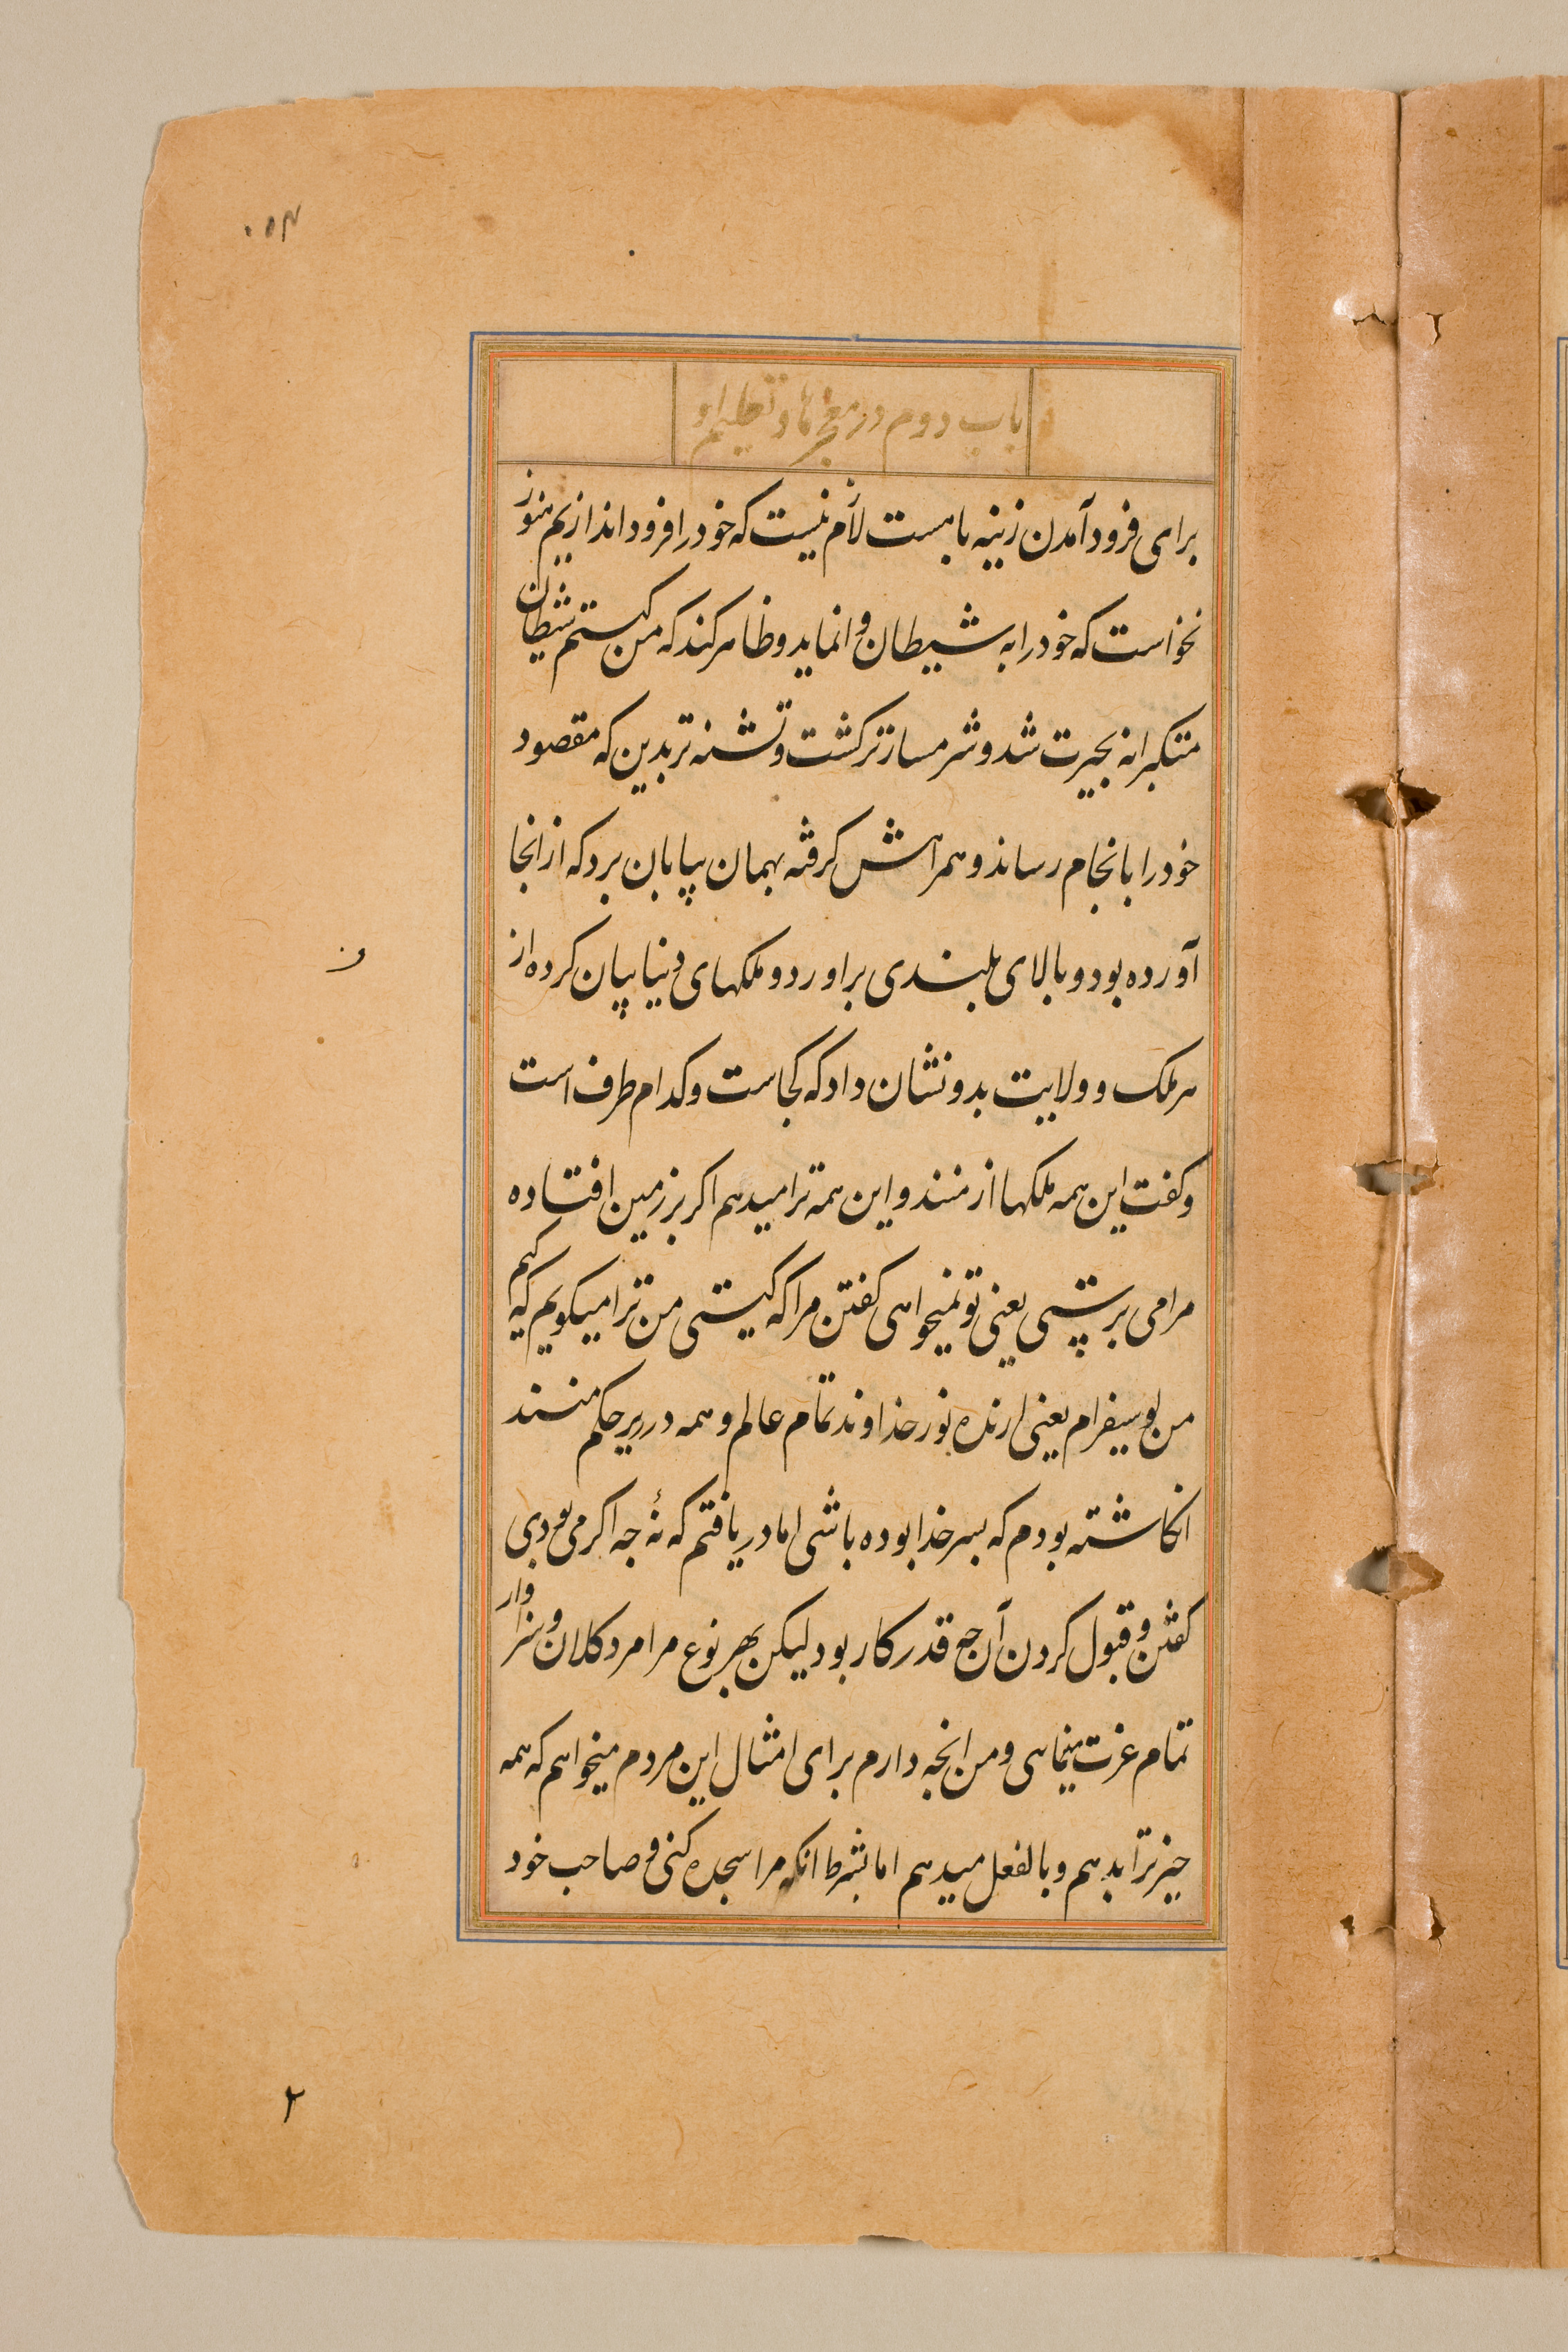 باب دوم در معجزها و تعلیم او
برای فرود آمدن زینه ها بهست لازم نیست که خود را فرود اندازیم هنوز
نخواست که خود را به شیطان وانماید و ظاهر کند که من کیستم شیطان
متکبرانه بحیرت شد و شرمسارتر کشت و تشنه تر بدین که مقصود
خود را بانجام رساند و همراهش کرفته بهمان بیابان برد که از انجا
آورده بود و بالای بلندی براورد و ملکهای دنیا بیان کرده از
هر ملک و ولایت بدو نشان داد که کجاست و کدام طرف است
و کفت این همه ملکها از منند و این همه ترا میدهم اکر بر زمین افتاده
مرا می پرستی یعنی تو نمیخواهی کفتن مرا که کیستی من ترا میکویم که کیم
من لوسیفرام یعنی ارنده نور خداوند تمام عالم و همه در زیر حکم منند
انکاشته بودم که پسر خدا بوده باشی اما دریافتم که نهٔ چه اکر می بودی
کفتن و قبول کردن آن چه قدر کار بود لیکن بهر نوع مرا مرد کلان و سزاوار
تمام عزت مینمایی و من انچه دارم برای امثال این مردم میخواهم که همه
چیز ترا بدهم و بالفعل میدهم اما بشرط انکه مرا سجده کنی و صاحب خود